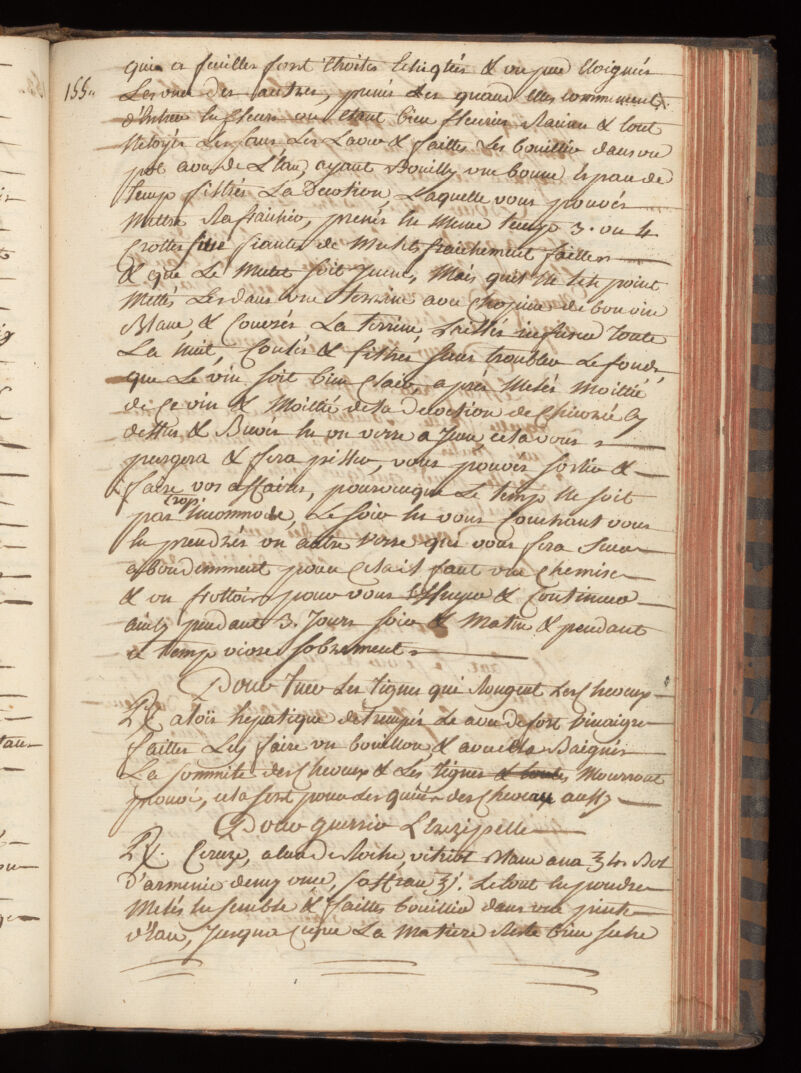 155.
qui a feuilles sont Etroites Echiqtés & un peu Eloignés
Les unes des autres, prenés Les quand elles commencent
d'Entrer En fleurs ou etant bien fleuries Racine & tout
Netoyés Les Sans Les Laver & faittes Les bouillir dans un
pot avec de L'Eau, ayant Bouilly une bonne Espace de
temp filtrés La Decotion, Laquelle vous pouvés
mettre Rafraichir, prenés En meme temps 3. ou 4
Crottes fiante de Mulet fraichement faittes
& que Le Mulet soit jeune, Mais quil ne tete point
mettés Les dans une terrine avec Chopine de bon vin
Blanc, & Couvrés La terrine Laissés infuser toute
La nuit, Coulés & filtrés sans troubler Le fond
que Le vin soit bien Clair, après Melés moittié
de Ce vin & Moittié de La decoction de Chicorée Cy
dessus & Buvés En un verre a jeun cela vous
purgera & fera pisser, vous pouvés sortir &
faire vos affaires, pourvuque Le temp ne soit
pas trop incommode, Le soir En vous Couchant vous
En prendrés un autre verre qui vous fera Suer
abondemment pour Cela il faut une Chemise
& un frottoir pour vous Essuyer & Continuer
ainsy pendant 3. Jours soir & Matin & pendant
ce temp vivre sobrement
Pour tuer Les tignes qui Rongent Les Cheveux
℞ aloës hepatique detrempés Le avec de fort vinaigre
faittes Luy faire un bouillon & avec Cela Baignés
La sommité des Cheveux & Les tignes Mourront
prouvé, cela sert pour des queües de Chevaux aussy
Pour guerrir L'Erezipelle
℞. Ceruze, alun de Roche, vitriol Blanc ana ℥4. Bol
d'armenie demy once, Saffran ʒ1. Le tout En poudre
Melés Ensemble & faittes bouillir dans une pinte
d'Eau, Jusqua Ceque La Matiere Reste bien seche